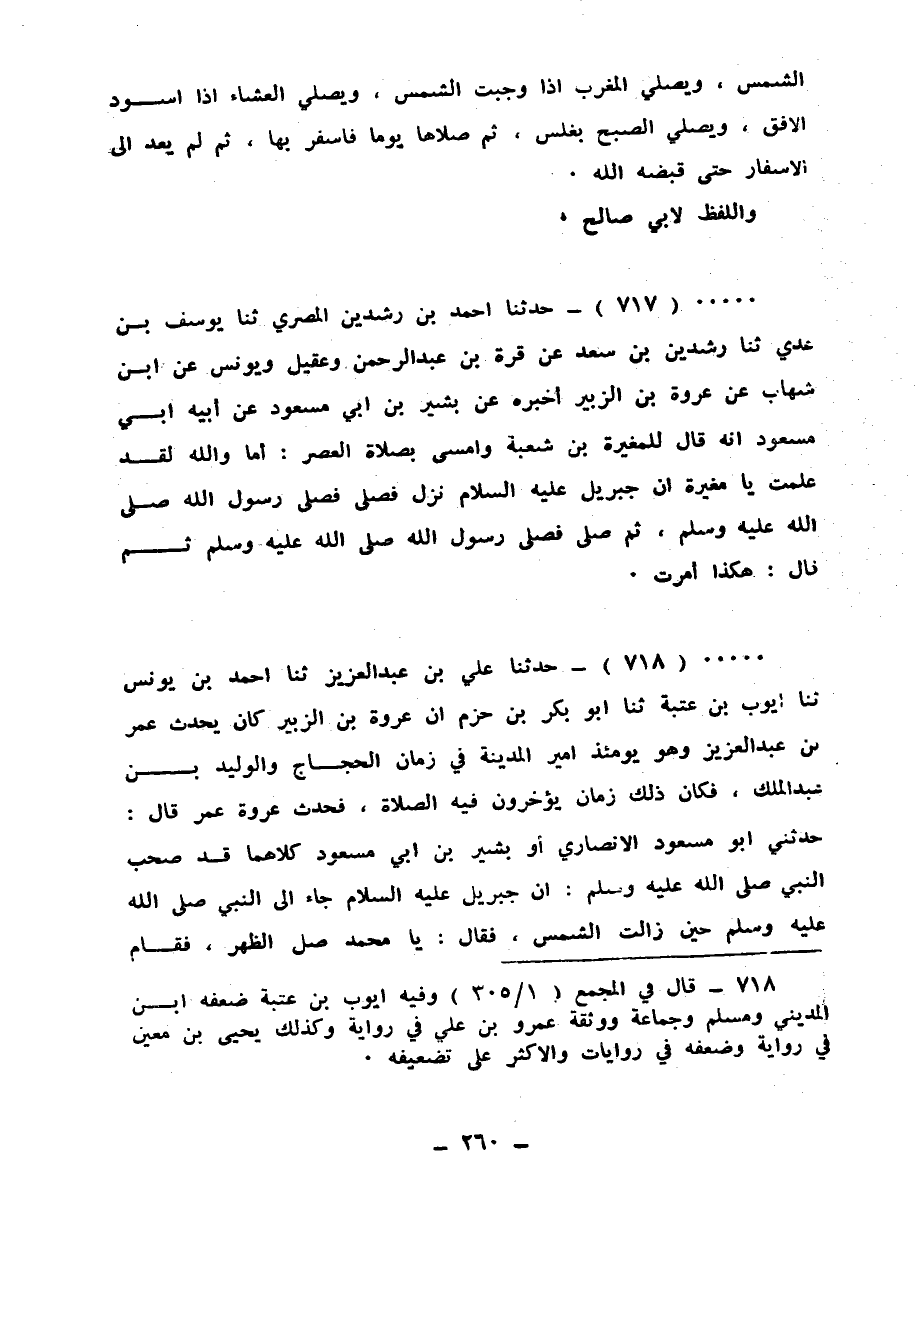 الشمس ، ويصلي المغرب اذا وجبت الشمس ، ويصلي العشاء اذا اسود
الافق ، ويصلي الصبح بغلس ، ثم صلاها يوما فاسفر بها ، ثم لم يعد الى
الاسفار حتى قبضه الله ٠
واللفظ لابي صالح ٠
٠٠٠٠٠ ( ٧١٧ ) ــ حدثنا احمد بن رشدين المصري ثنا يوسف بن
عدي ثنا رشدين بن سعد عن قرة بن عبدالرحمن وعقيل ويونس عن ابن
شهاب عن عروة بن الزبير أخبره عن بشير بن ابي مسعود عن أبيه ابي
مسعود انه قال للمغيرة بن شعبة وامسى بصلاة العصر : أما والله لقد
علمت يا مغيرة ان جبريل عليه السلام نزل فصلى فصلى رسول الله صلى
الله عليه وسلم ، ثم صلى فصلى رسول الله صلى الله عليه وسلم ثم
قال : هكذا أمرت ٠
٠٠٠٠٠ ( ٧١٨ ) ــ حدثنا علي بن عبدالعزيز ثنا احمد بن يونس
ثنا ايوب بن عتبة ثنا ابو بكر بن حزم ان عروة بن الزبير كان يحدث عمر
بن عبدالعزيز وهو يومئذ امير المدينة في زمان الحجاج والوليد بن
عبدالملك ، فكان ذلك زمان يؤخرون فيه الصلاة ، فحدث عروة عمر قال :
حدثني ابو مسعود الانصاري أو بشير بن ابي مسعود كلاهما قد صحب
النبي صلى الله عليه وسلم : ان جبريل عليه السلام جاء الى النبي صلى الله
عليه وسلم حين زالت الشمس ، فقال : يا محمد صل الظهر ، فقام
٧١٨ ــ قال في المجمع ( ٣٠٥/١ ) وفيه ايوب بن عتبة ضعفه ابن
المديني ومسلم وجماعة ووثقة عمرو بن علي في رواية وكذلك يحيى بن معين
في رواية وضعفه في روايات والاكثر على تضعيفه ٠
ــ ٢٦٠ ــ